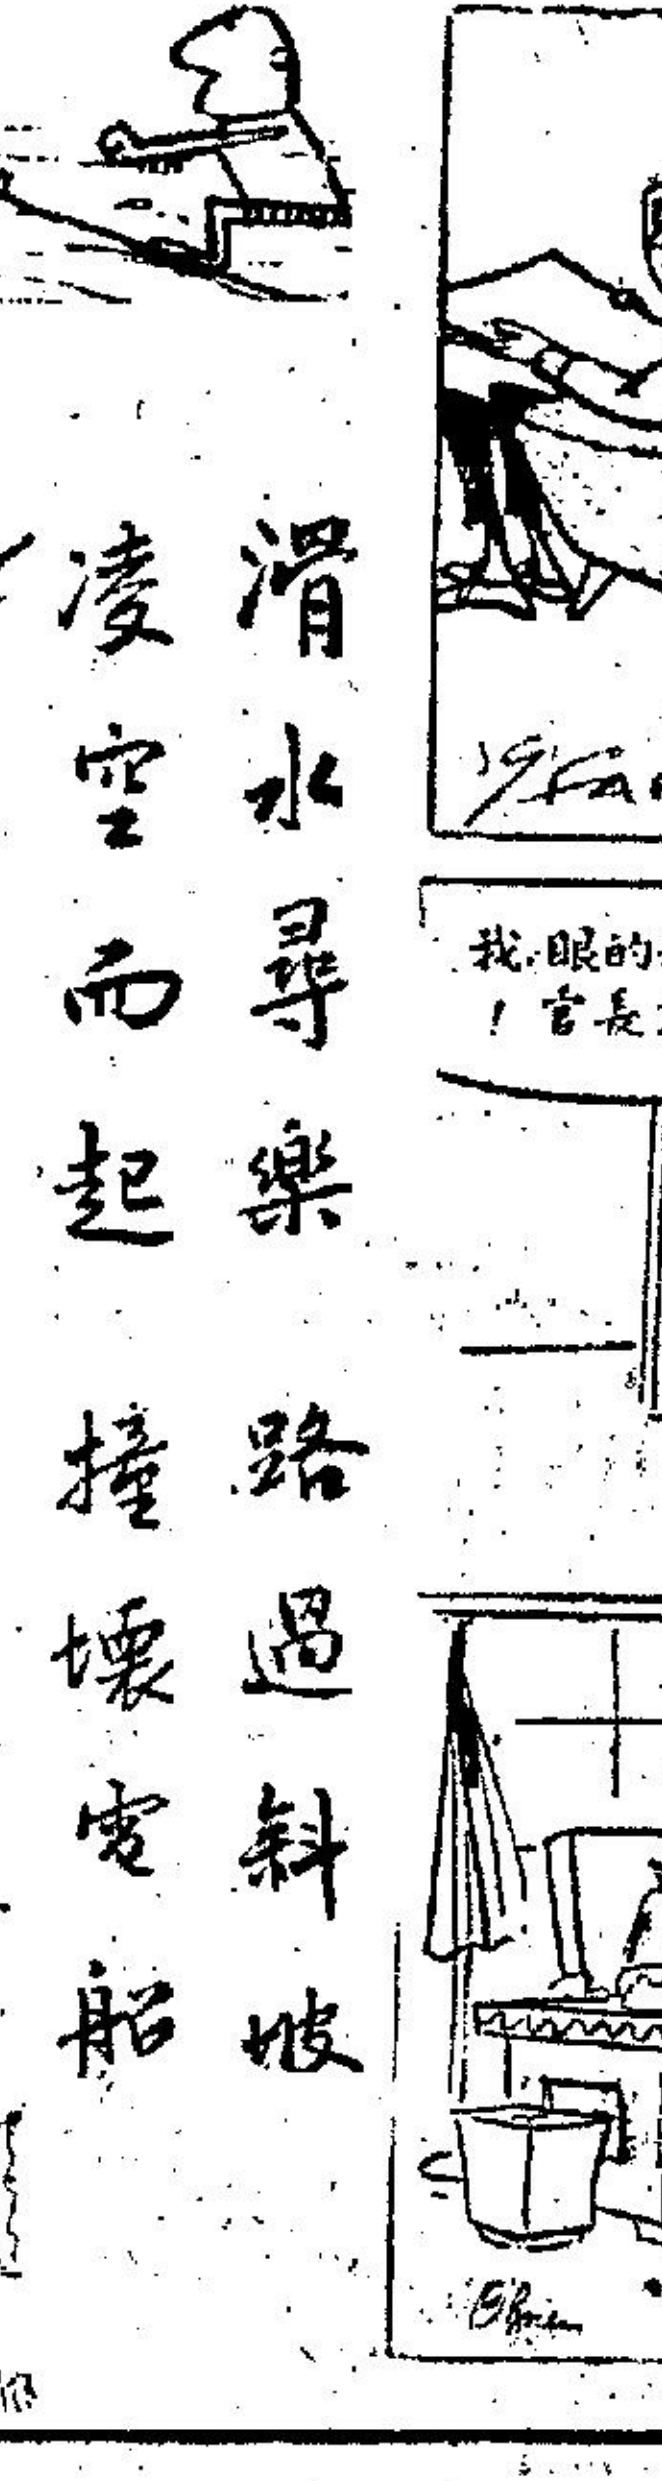 滑水尋樂 路過斜坡
凌空而起 撞壞電船
我眼的
！官長